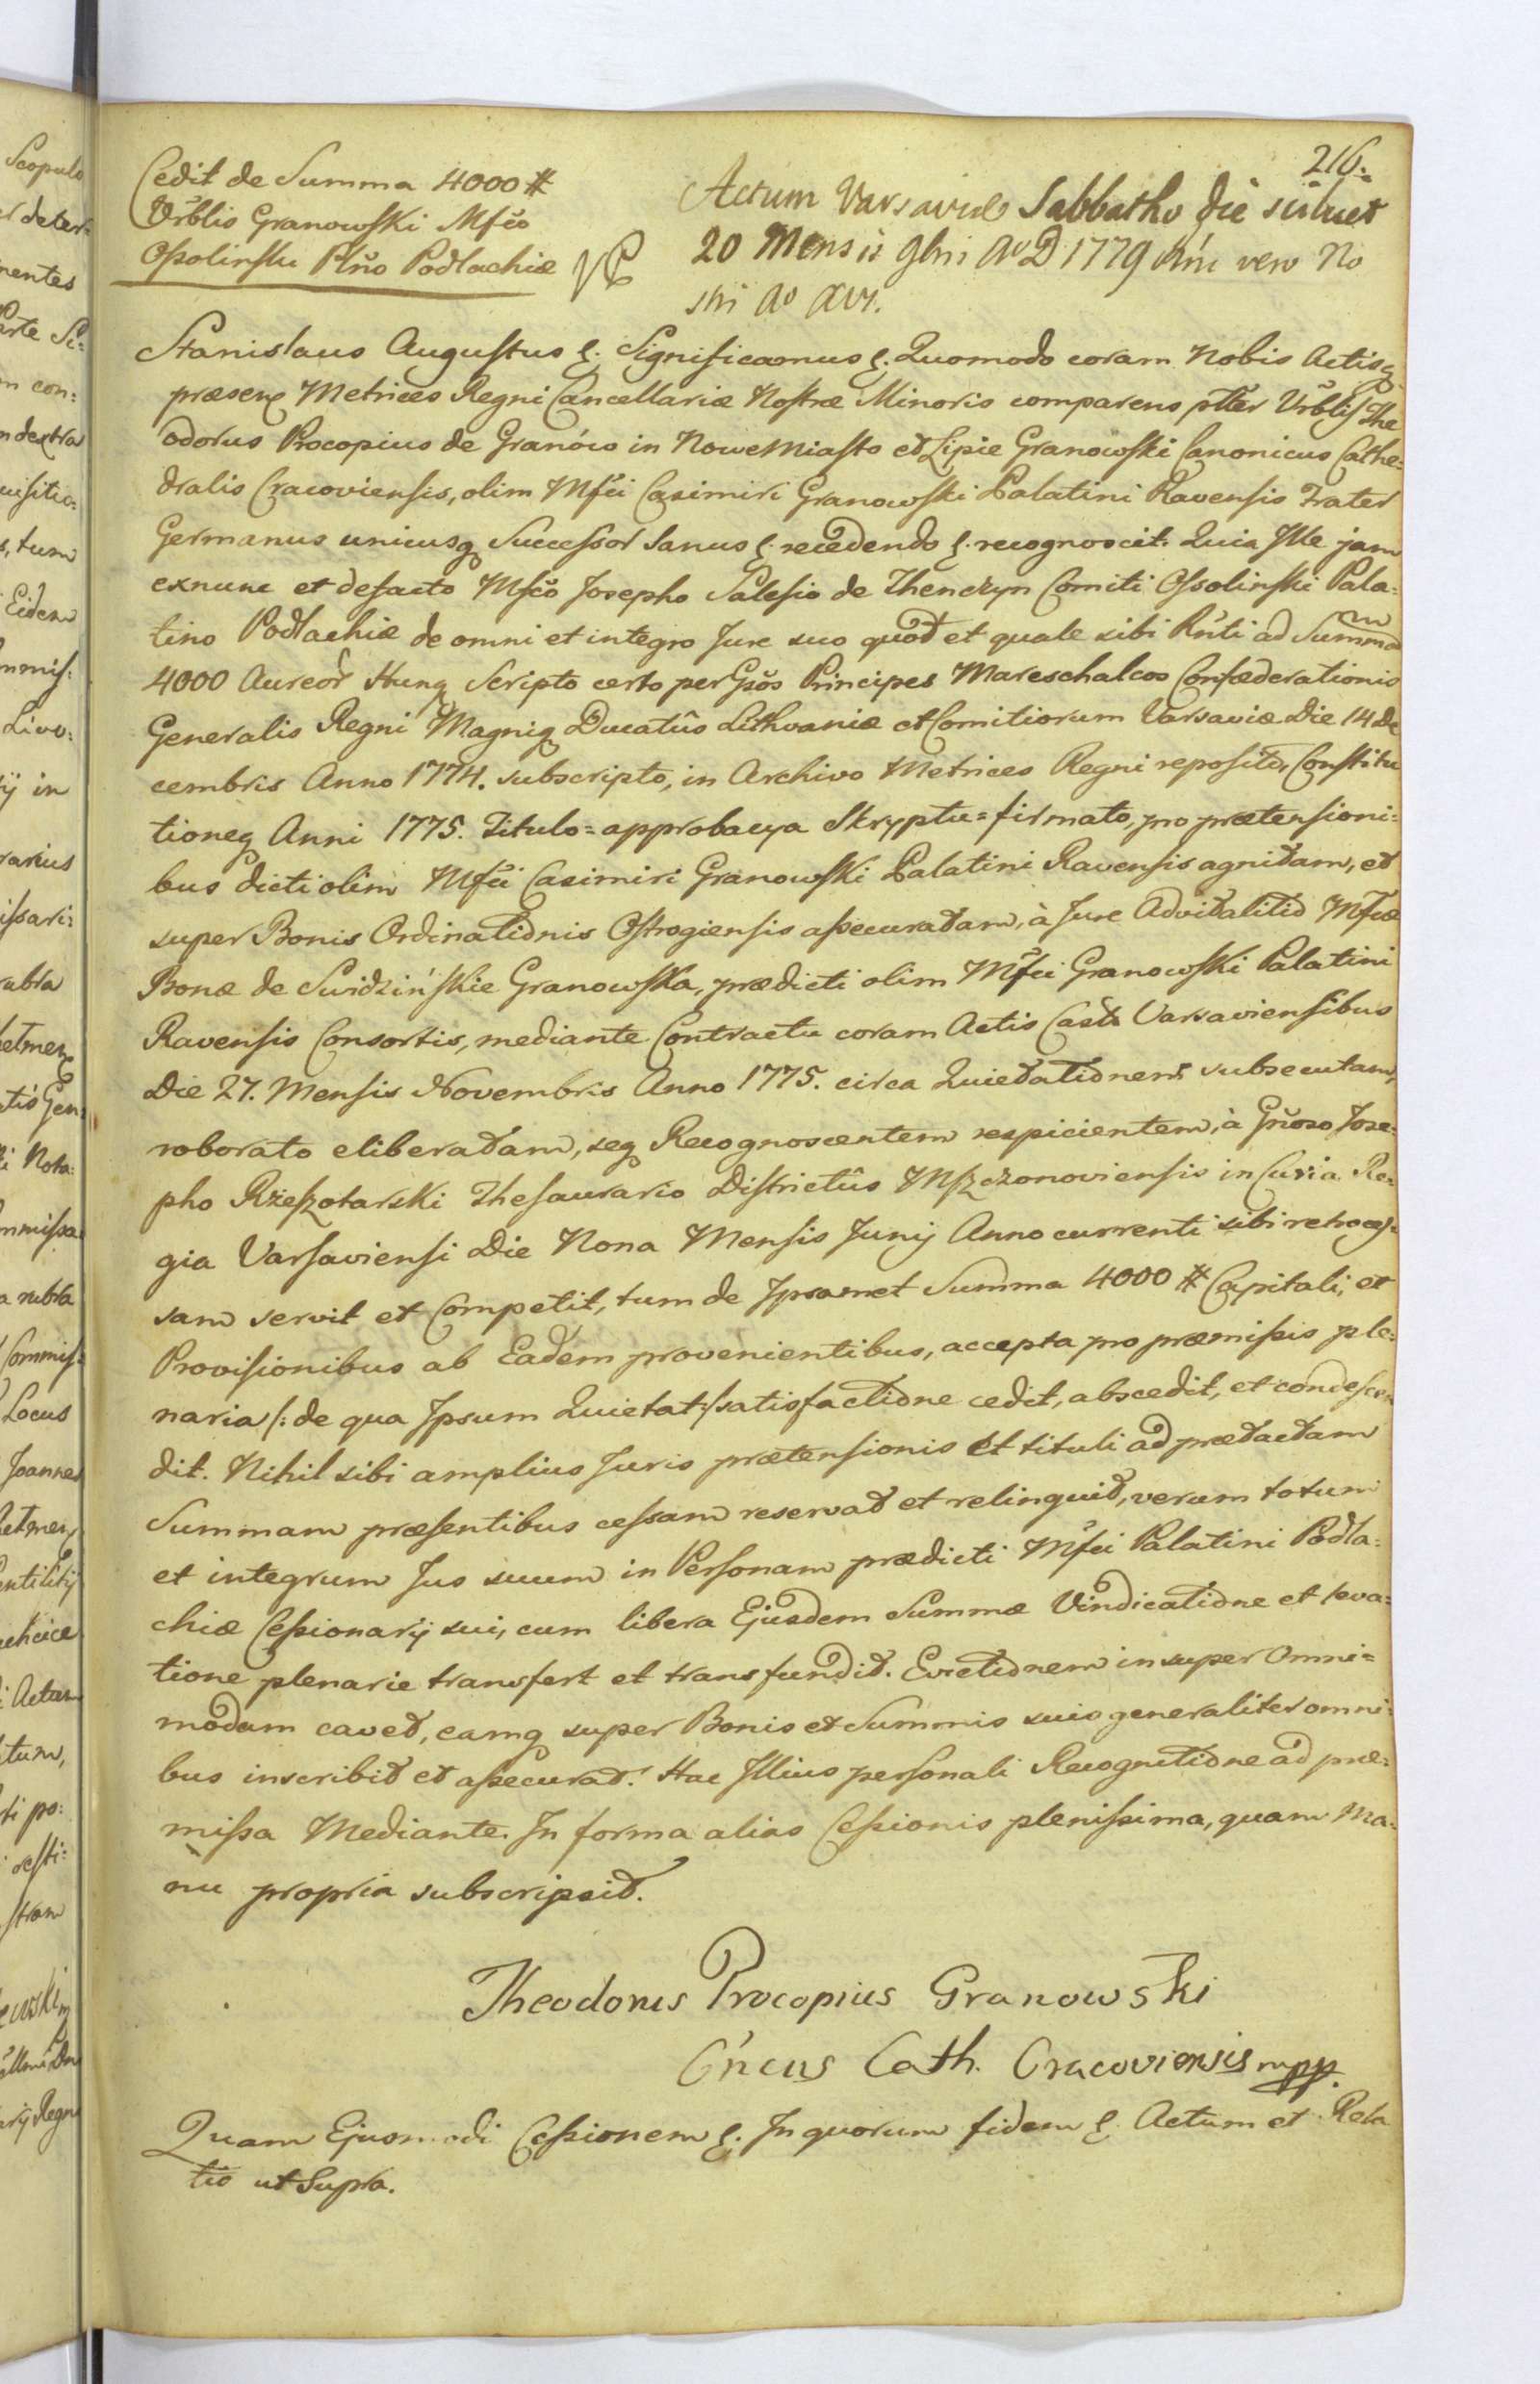 216.
Cedit de Summa 4000 #
Vrblis Granowski Mfco
Ossolinsku Plno Podlachiæ
Actum Varsaviæ Sabbatho die scilicet
20 Mensis 9bris Ao D 1779 Rni vero No
stri Ao XVI.
Stanislaus Augustus &. Significamus &. Quomodo coram Nobis Actisq
præsen Metrices Regni Cancellariæ Nostræ Minoris comparens ptter Vrblis The
odorus Procopius de Granów in Nowemiasto et Lipie Granowski Canonicus Cathe=
dralis Cracoviensis, olim Mfci Casimiri Granowski Palatini Ravensis Frater
Germanus unicusq Successor Sanus &. recedendo &. recognoscit. Quia Ille jam
exnunc et defacto Mfco Josepho Salesio de Thenczyn Comiti Ossolinski Pala=
tino Podlachiæ de omni et integro Jure suo quod et quale sibi Rnti ad Summam
4000 Aureor Hung Scripto certo per Gsos Principes Mareschalcos Confæderationis
Generalis Regni Magniq Ducatûs Lithvaniæ et Comitiorum Varsaviæ Die 14 De
cembris Anno 1774. subscripto, in Archivo Metrices Regni reposito, Constitu
tioneq Anni 1775. Titulo=approbacya Skryptu=firmato, pro prætensioni=
bus dicti olim Mfci Casimiri Granowski Palatini Ravensis agnitam, et
super Bonis Ordinationis Ostrogiensis assecuratam, à Jure Advitalitio Mfcæ
Bonæ de Swidzińskie Granowska, prædicti olim Mfci Granowski Palatini
Ravensis Consortis, mediante Contractu coram Actis Castr Varsaviensibus
Die 27. Mensis Novembris Anno 1775. circa Quietationem subsecutam,
roborato eliberatam, seq Recognoscentem respicientem, à Gnoso Jose=
pho Rzeszotarski Thesaurario Districtûs Mszczonoviensis in Curia Re=
gia Varsaviensi Die Nona Mensis Junij Anno currenti sibi retroces=
sam servit et Competit, tum de Ipsamet Summa 4000 # Capitali, et
Provisionibus ab Eadem provenientibus, accepta pro præmissis ple=
naria /: de qua Ipsum Quietat :/ satisfactione cedit, abscedit, et condescen
dit. Nihil sibi amplius Juris prætensionis et tituli ad prætactam
Summam præsentibus cessam reservat et relinquit, verum totum
et integrum Jus suum in Personam prædicti Mfci Palatini Podla=
chiæ Cessionarij sui, cum libera Ejusdem Summæ Vindicatione et leva=
tione plenarie transfert et transfundit. Evictionem insuper Omni=
modam cavet, eamq super Bonis et Summis suis generaliter omni=
bus inscribit et assecurat. Hac Illius personali Recognitione ad præ=
missa Mediante. In forma alias Cessionis plenissima, quam Ma=
nu propria subscripsit.
Theodorus Procopius Granowski
Cńcus Cath. Cracoviensis mpp.
Quam Ejusmodi Cessionem &. In quorum fidem &. Actum et Rela
tio ut Supra.